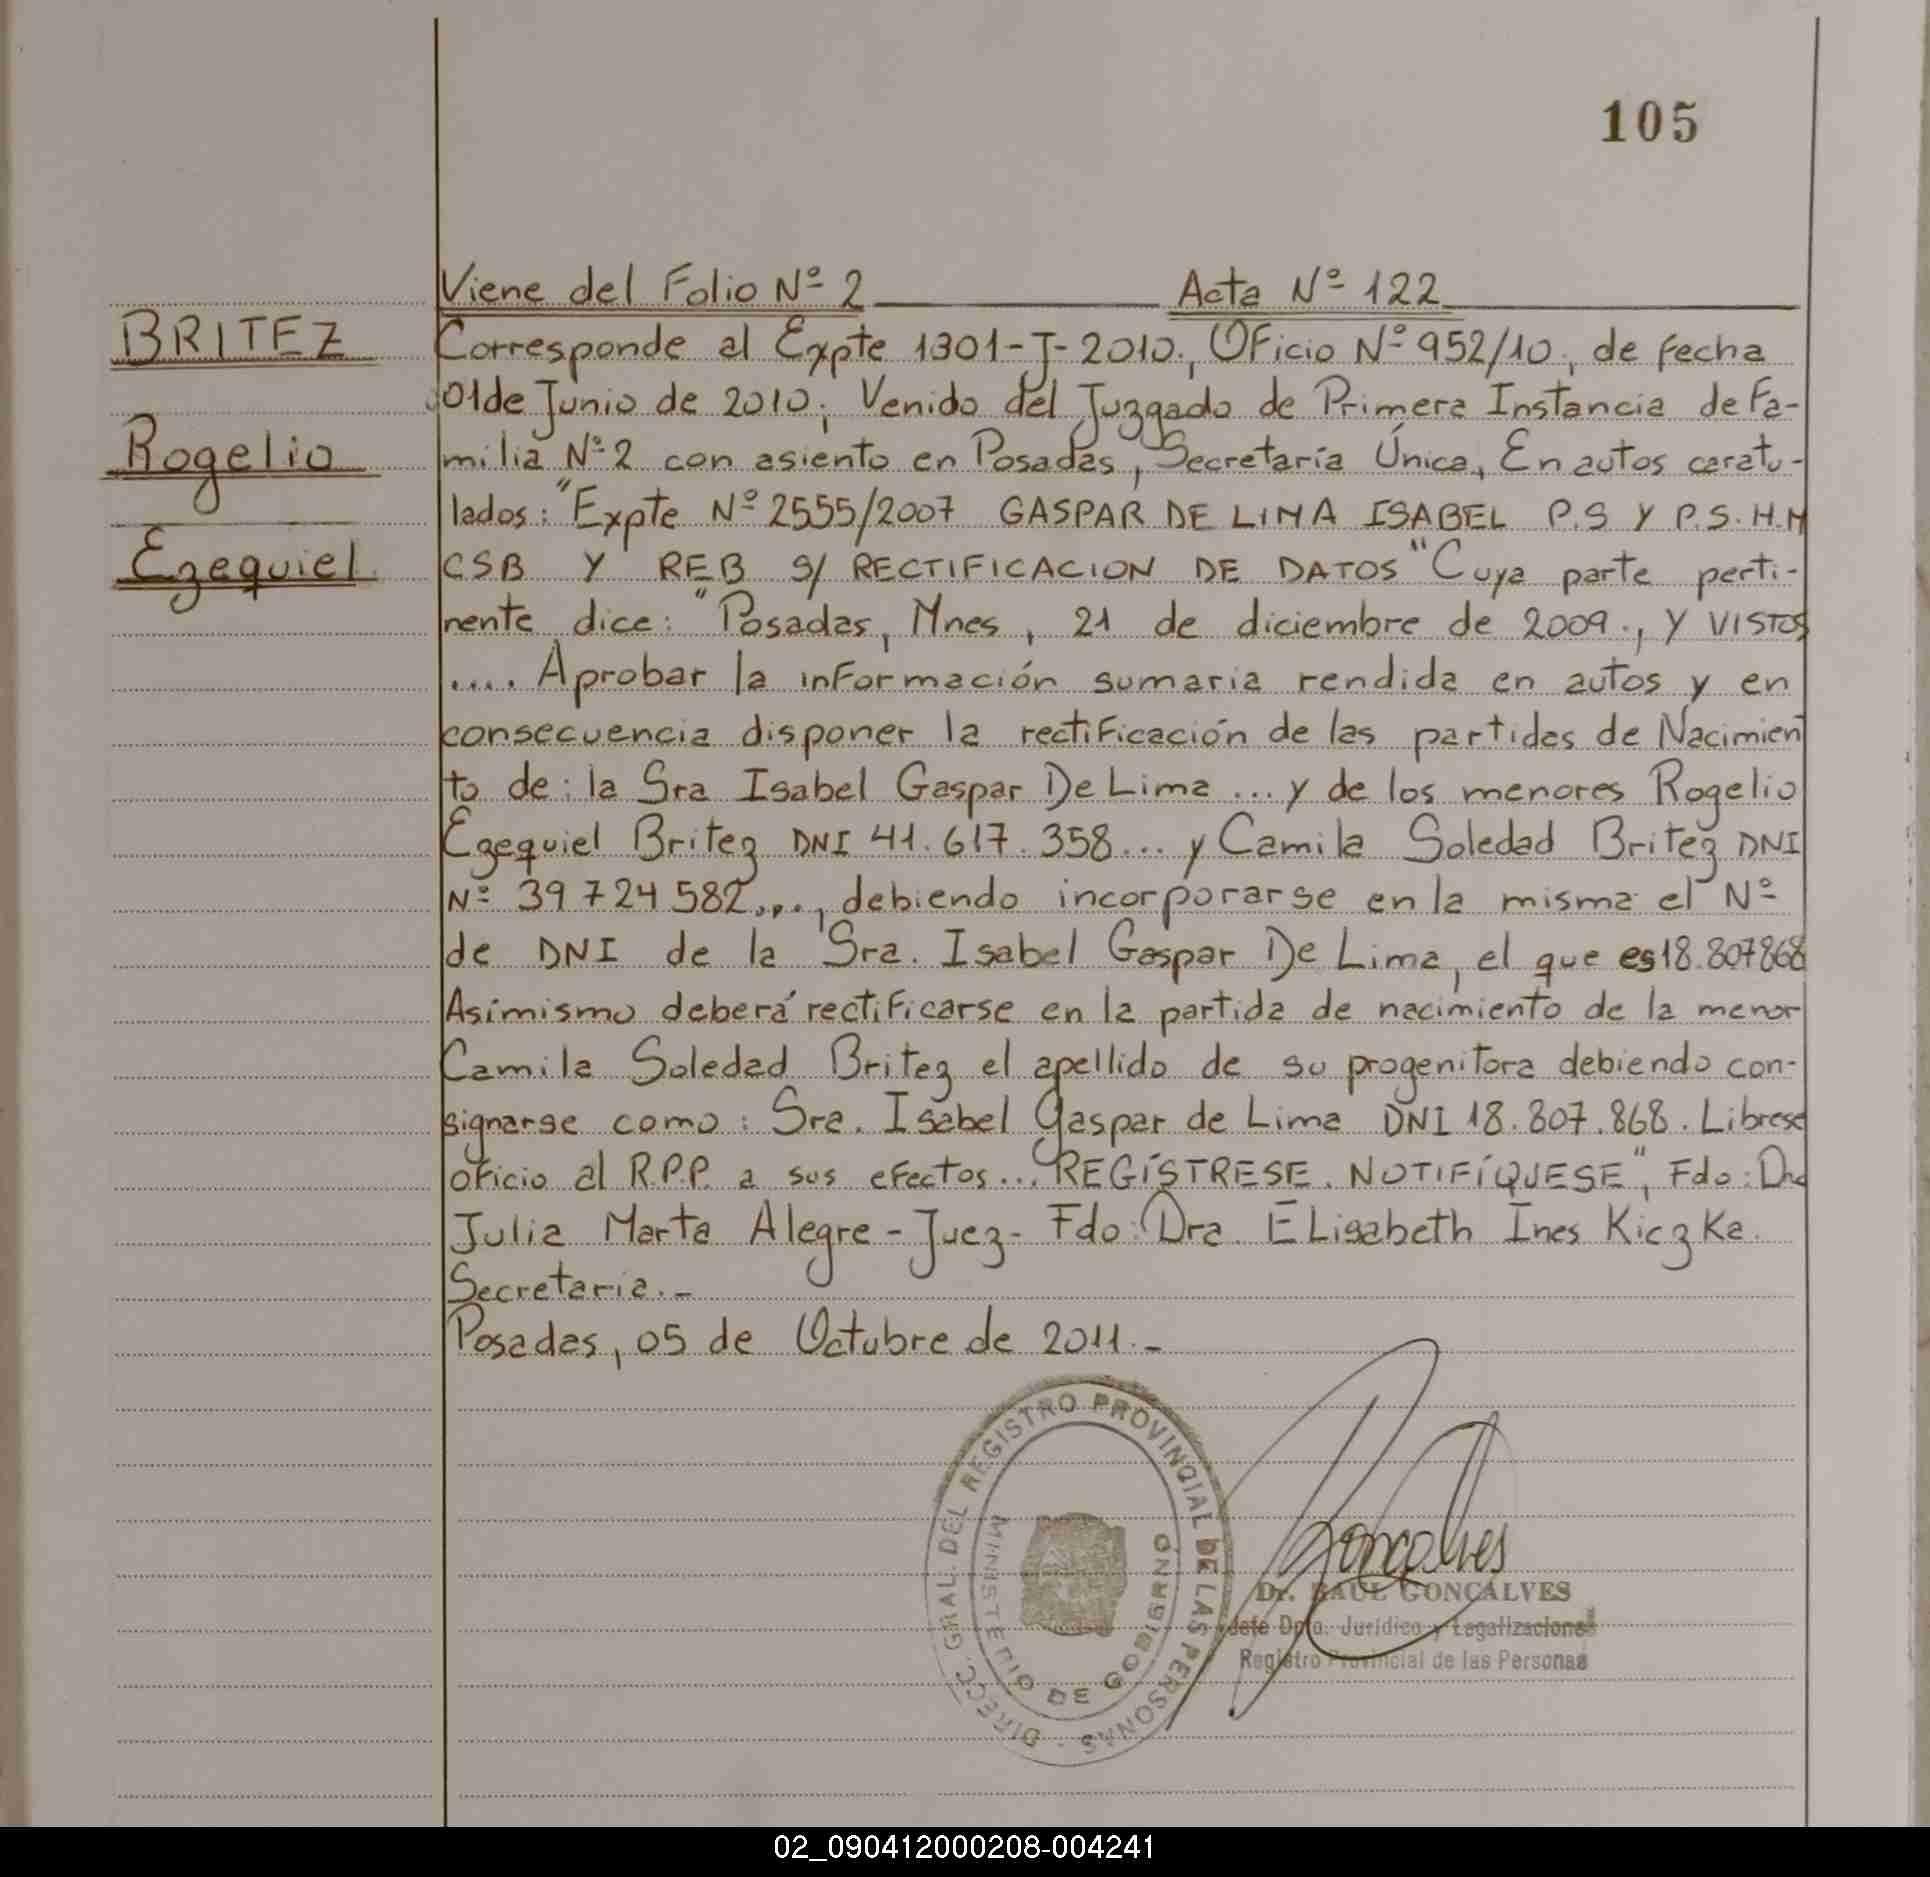 105
Viene del Folio Nº 2 Acta Nº 122
BRITEZ
Corresponde al Expte 1301-J-2010., Oficio Nº 952/10, de fecha
01 de Junio de 2010; Venido del Juzgado de Primera Instancia de Fa-
Rogelio
milia Nº 2 con asiento en Posadas, Secretaría Única, En autos caratu-
lados: "Expte Nº 2555/2007 GASPAR DE LIMA ISABEL P.S Y P.S.H.M
Ezequiel
CSB Y REB S/ RECTIFICACION DE DATOS" Cuya parte perti-
nente dice: "Posadas, Mnes, 21 de diciembre de 2009., Y VISTOS
.... Aprobar la información sumaria rendida en autos y en
consecuencia disponer la rectificación de las partidas de Nacimien
to de: la Sra Isabel Gaspar De Lima ... y de los menores Rogelio
Ezequiel Britez DNI 41.617.358... y Camila Soledad Britez DNI
Nº 39 724 582...., debiendo incorporarse en la misma el Nº
de DNI de la Sra. Isabel Gaspar De Lima, el que es 18.807868
Asimismo deberá rectificarse en la partida de nacimiento de la menor
Camila Soledad Britez el apellido de su progenitora debiendo con-
signarse como: Sra. Isabel Gaspar de Lima DNI 18.807.868. Librese
oficio al R.P.P. a sus efectos... REGÍSTRESE. NOTIFÍQUESE", Fdo: Dra
Julia Marta Alegre - Juez - Fdo: Dra. ELisabeth Ines Kiczka.
Secretaria.-
Posadas, 05 de Octubre de 2011.-
DIRECC. GRAL. DEL REGISTRO PROVINCIAL DE LAS PERSONAS
MINISTERIO DE GOBIERNO
Gonçalves
Dr. RAUL GONCALVES
Jefe Dpto. Jurídico y Legalizaciones
Registro Provincial de las Personas
02_090412000208-004241